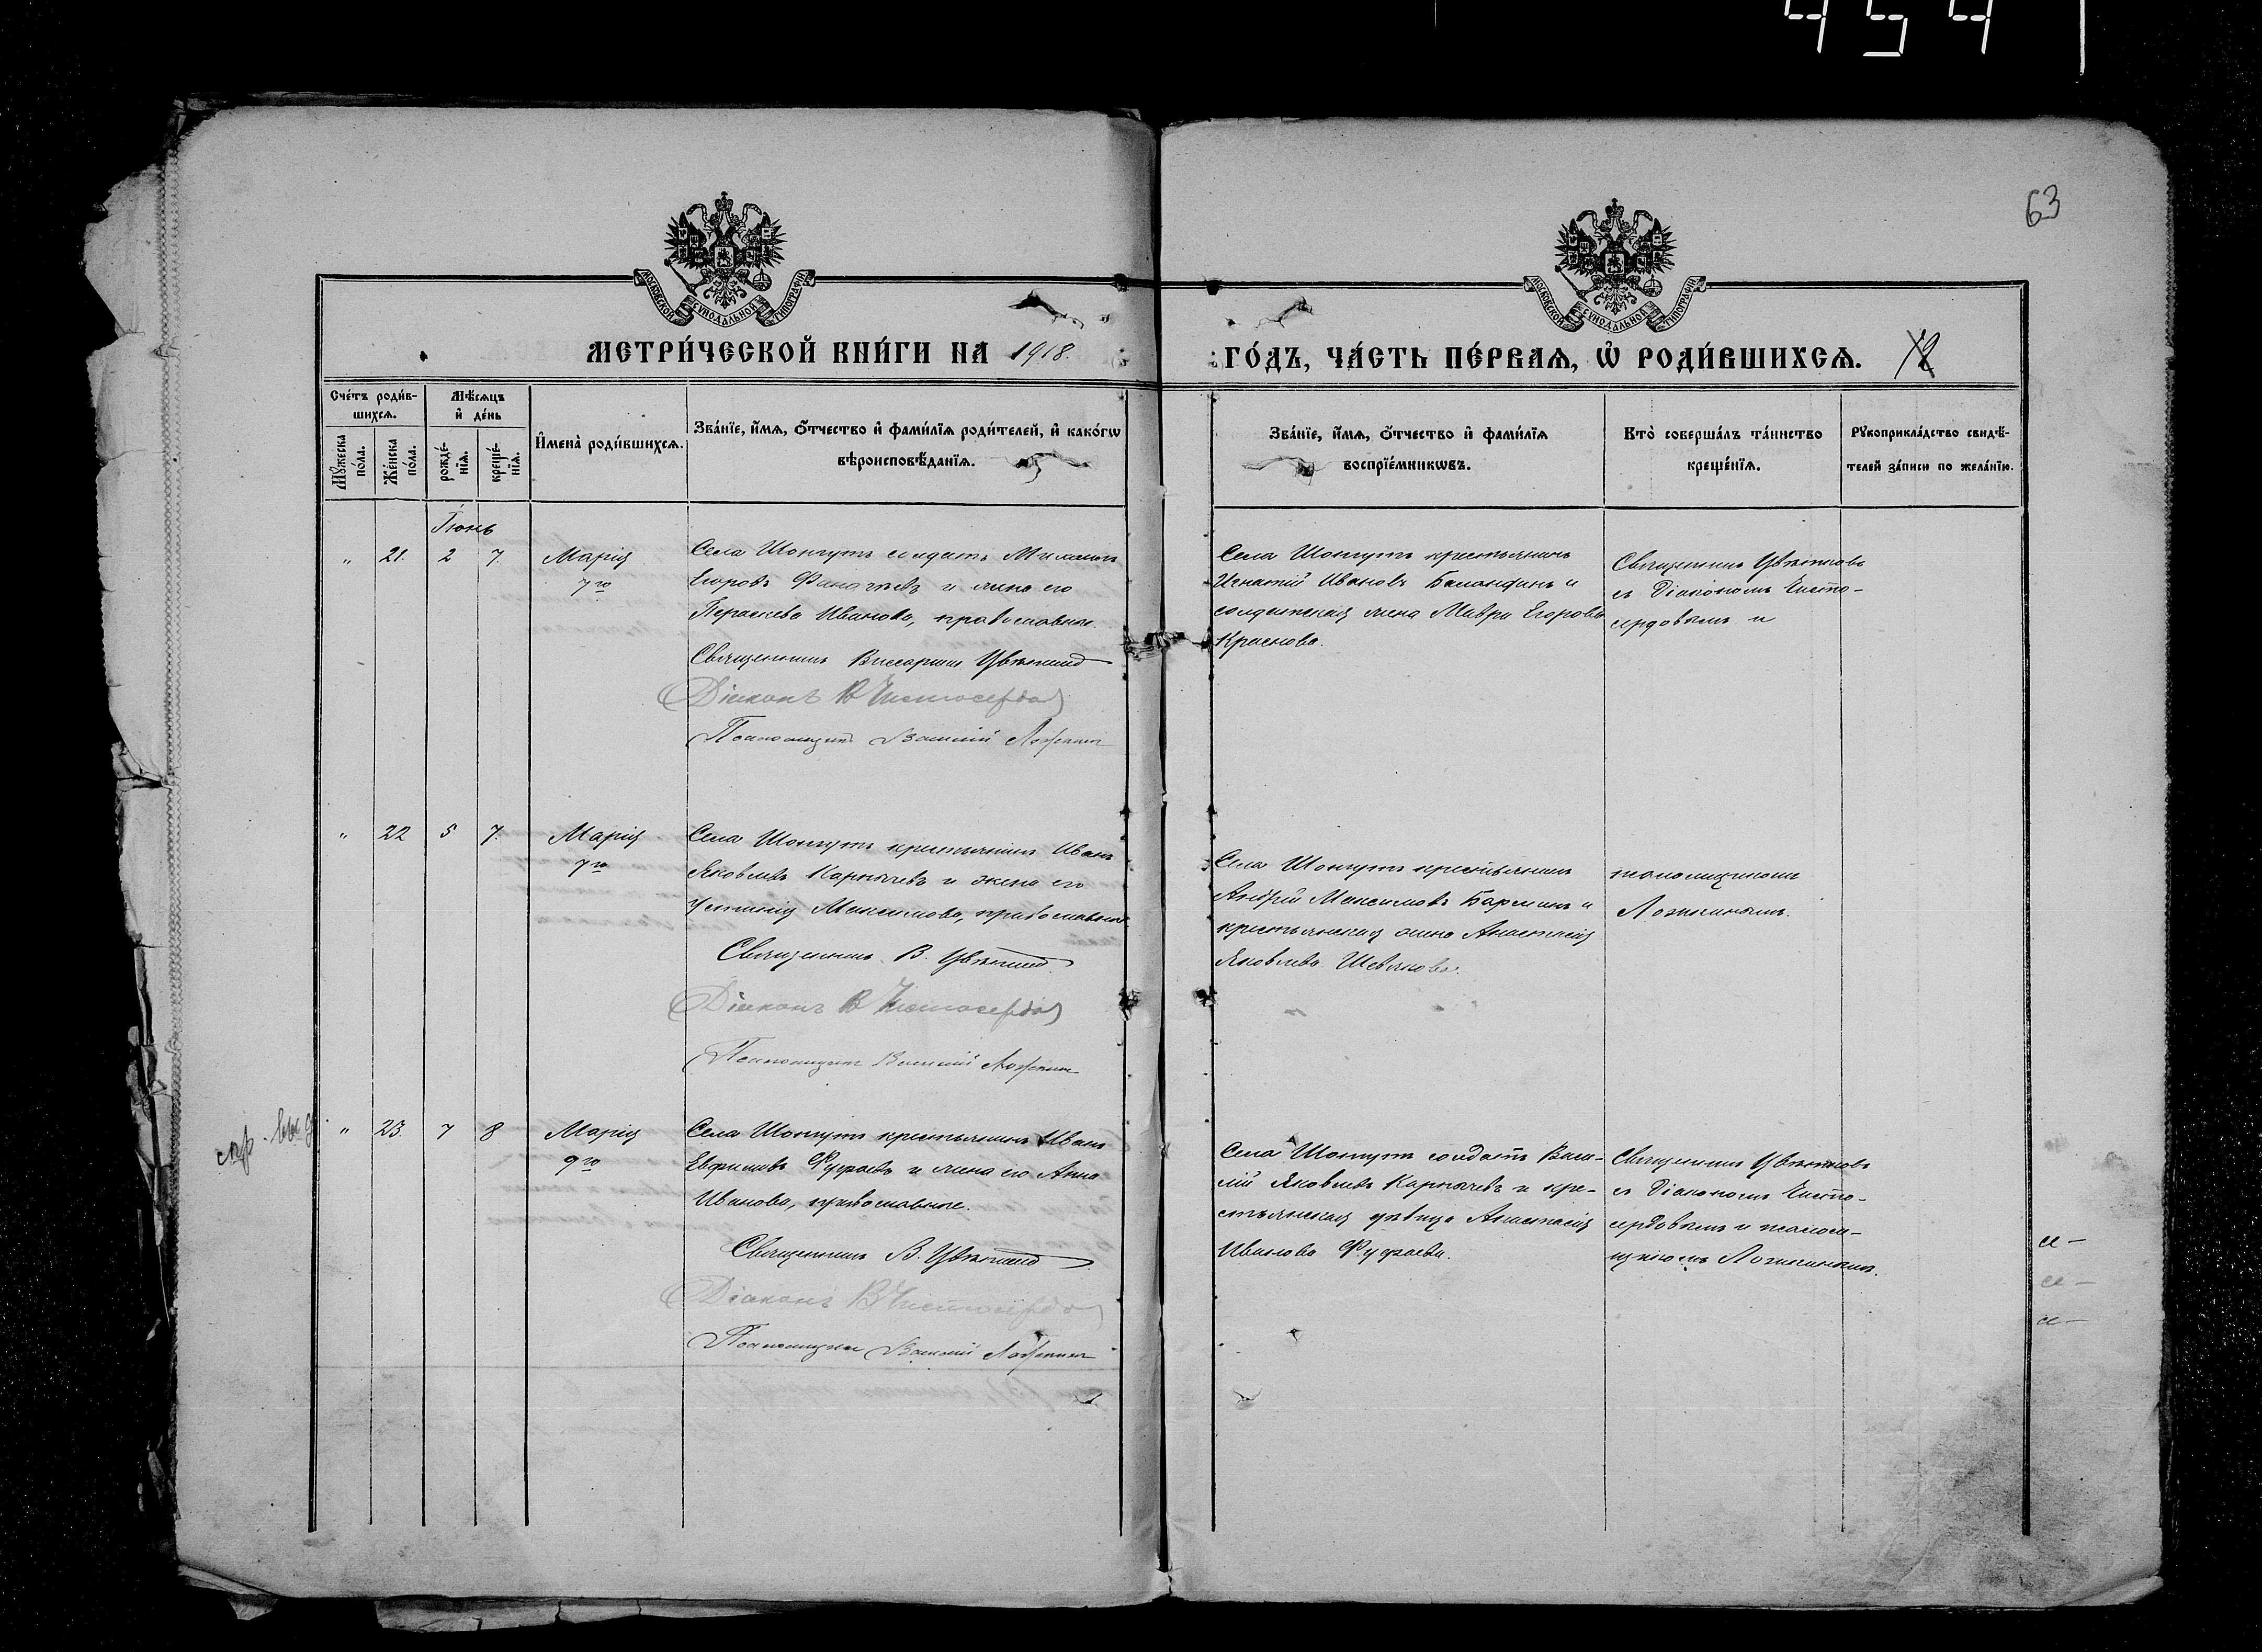 454
63
МОСКОВСКОЙ СѴНОДАЛЬНОЙ ТИПОГРАФІИ
МОСКОВСКОЙ СѴНОДАЛЬНОЙ ТИПОГРАФІИ
МЕТРИ́ЧЕСКОЙ КНИ́ГИ НА 1918.
ГО́ДЪ, ЧА́СТЬ ПЕ́РВАѦ, Ѽ РОДИ́ВШИХСѦ.
Сче́тъ роди́в-
шихсѧ.
Мꙋ́жеска по́ла.
Же́нска по́ла.
Мѣ́сѧцъ
и҆ де́нь
рожде́-нїѧ.
креще́-нїѧ.
И҆мена̀ роди́вшихсѧ.
Зва́нїе, и҆́мѧ, ѻ҆́тчество и҆ фами́лїѧ роди́телей, и҆ како́гѡ
вѣроисповѣ́данїѧ.
Зва́нїе, и҆́мѧ, ѻ҆́тчество и҆ фами́лїѧ
воспрїе́мникѡвъ.
Кто̀ соверша́лъ та́инство
креще́нїѧ.
Рꙋкоприкла́дство свидѣ́-
телей за́писи по жела́нїю.
Іюнь
" 21. 2 7. Марія
7го
Села Шонгутъ солдатъ
Егоровъ и жена его
Параскева Иванова, православные.
Священникъ Виссаріонъ Цвѣтковъ
Діаконъ В Чистосердов
Псаломщикъ Василій Ложкинъ
Села Шонгутъ крестьянинъ
Игнатій Ивановъ Баландинъ и
солдатская жена Мавра Егорова
Краснова.
Священникъ Цвѣтковъ
съ Діакономъ Чисто-
сердовымъ и
" 22 5 7. Марія
7го
Села Шонгутъ крестьянинъ Иванъ
Яковлевъ Карпычевъ и жена его
Устинія Максимова, православные
Священникъ В. Цвѣтковъ
Діаконъ В Чистосердов
Псаломщикъ Василій Ложкинъ
Села Шонгутъ крестьянинъ
Андрей Максимовъ Барминъ и
крестьянская жена Анастасія
Яковлева
псаломщикомъ
Ложкинымъ.
" 23. 7 8 Марія
9го
Села Шонгутъ крестьянинъ Иванъ
Евфимовъ Фуфаевъ и жена его Анна
Иванова, православные.
Священникъ В. Цвѣтковъ
Діаконъ В Чистосердов
Псаломщикъ Василій Ложкинъ
Села Шонгутъ солдатъ Васи-
лій Яковлевъ Карпычевъ и кре-
стьянская дѣвица Анастасія
Иванова Фуфаева.
Священникъ Цвѣтковъ
съ Діакономъ Чисто-
сердовымъ и псалом-
щикомъ Ложкинымъ.